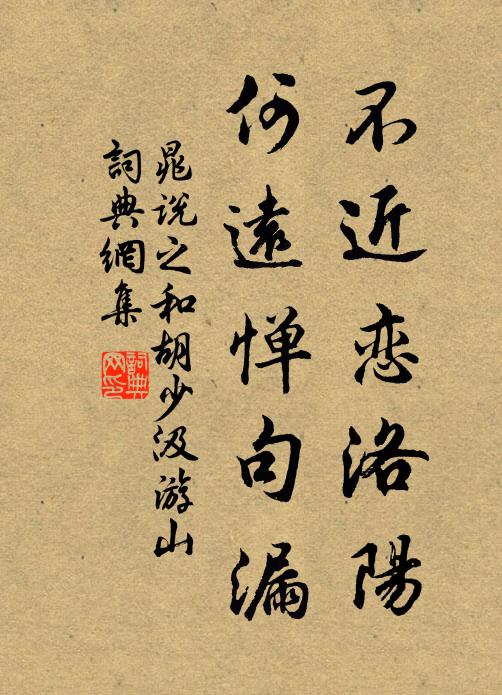 不近恋洛陽
何遠惮句漏
晁说之和胡少汲游山
詞典網集